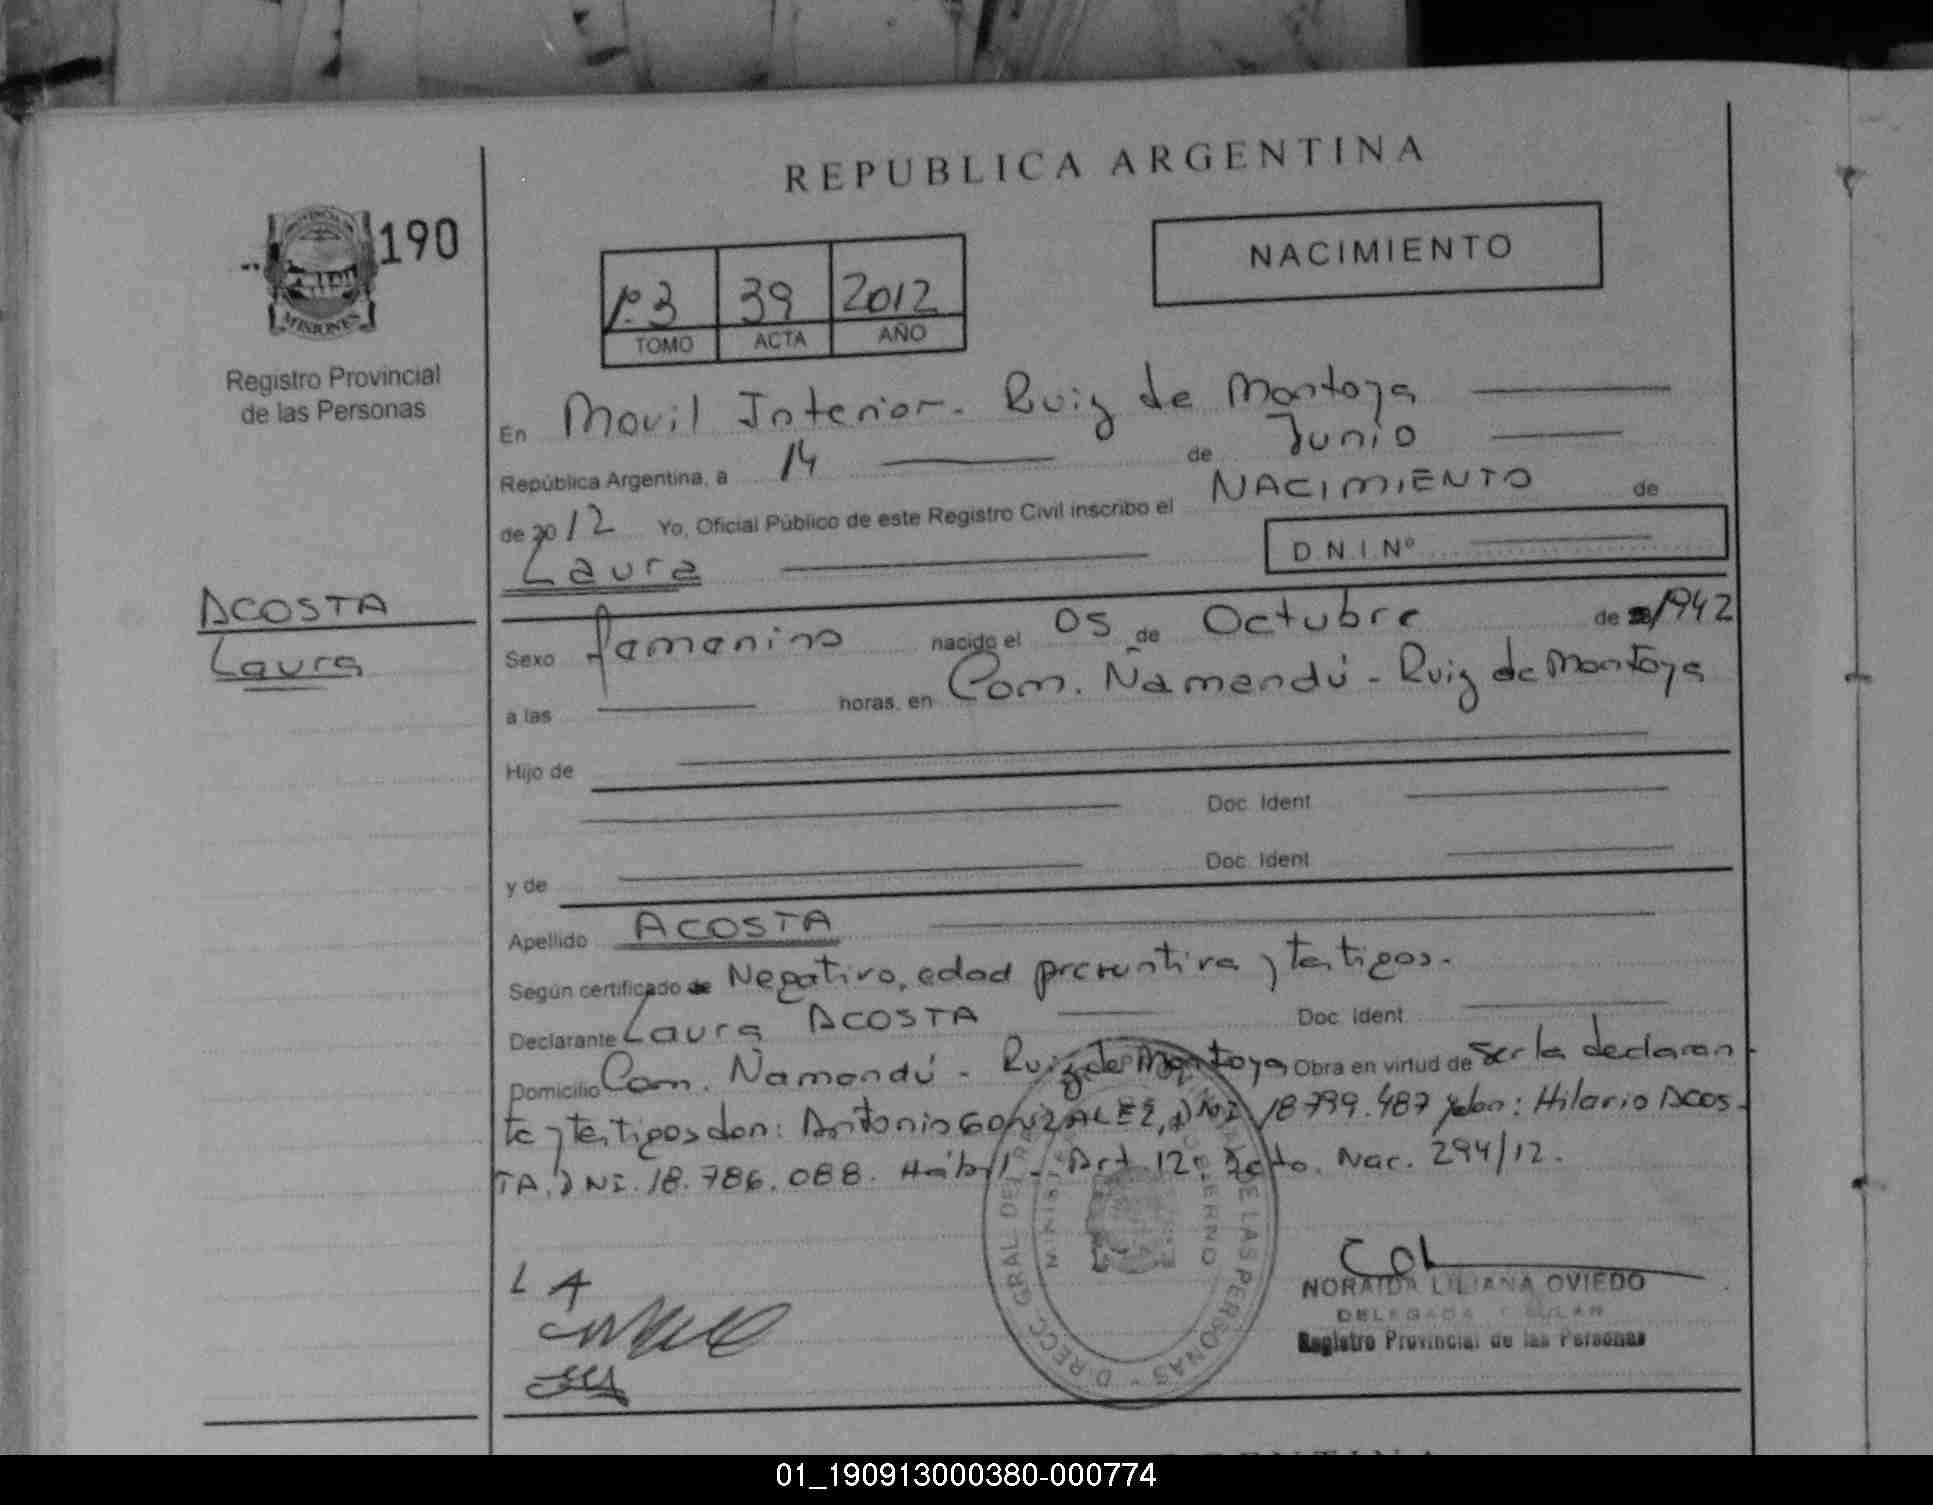 REPUBLICA ARGENTINA
190
MISIONES
Registro Provincial
de las Personas
1º.3 39 2012
TOMO ACTA AÑO
NACIMIENTO
En Movil Interior. Ruiz de Montoya
República Argentina, a 14 de Junio
de 2012 Yo, Oficial Público de este Registro Civil inscribo el NACIMIENTO de
Laura
D.N.I.Nº
ACOSTA
Laura
Sexo femenino nacido el 05 de Octubre de 1942
a las horas, en Com. Ñamandú - Ruiz de Montoya
Hijo de
Doc. Ident
y de Doc. Ident
Apellido ACOSTA
Según certificado de Negativo, edad presuntiva y testigos.
Declarante Laura ACOSTA Doc. Ident.
Domicilio Com. Ñamandú - Ruiz de Montoya Obra en virtud de ser la declaran-
te y testigos don: Antonio GONZALEZ, DNI 18.799.487 y don: Hilario ACOS-
TA, DNI. 18.786.088. Hábil - Art. 12º Dcto. Nac. 294/12.
L A
NORAIDA LILIANA OVIEDO
DELEGADA
Registro Provincial de las Personas
DIRECC. GRAL DEL DE LAS PERSONAS
GOBIERNO
01_190913000380-000774